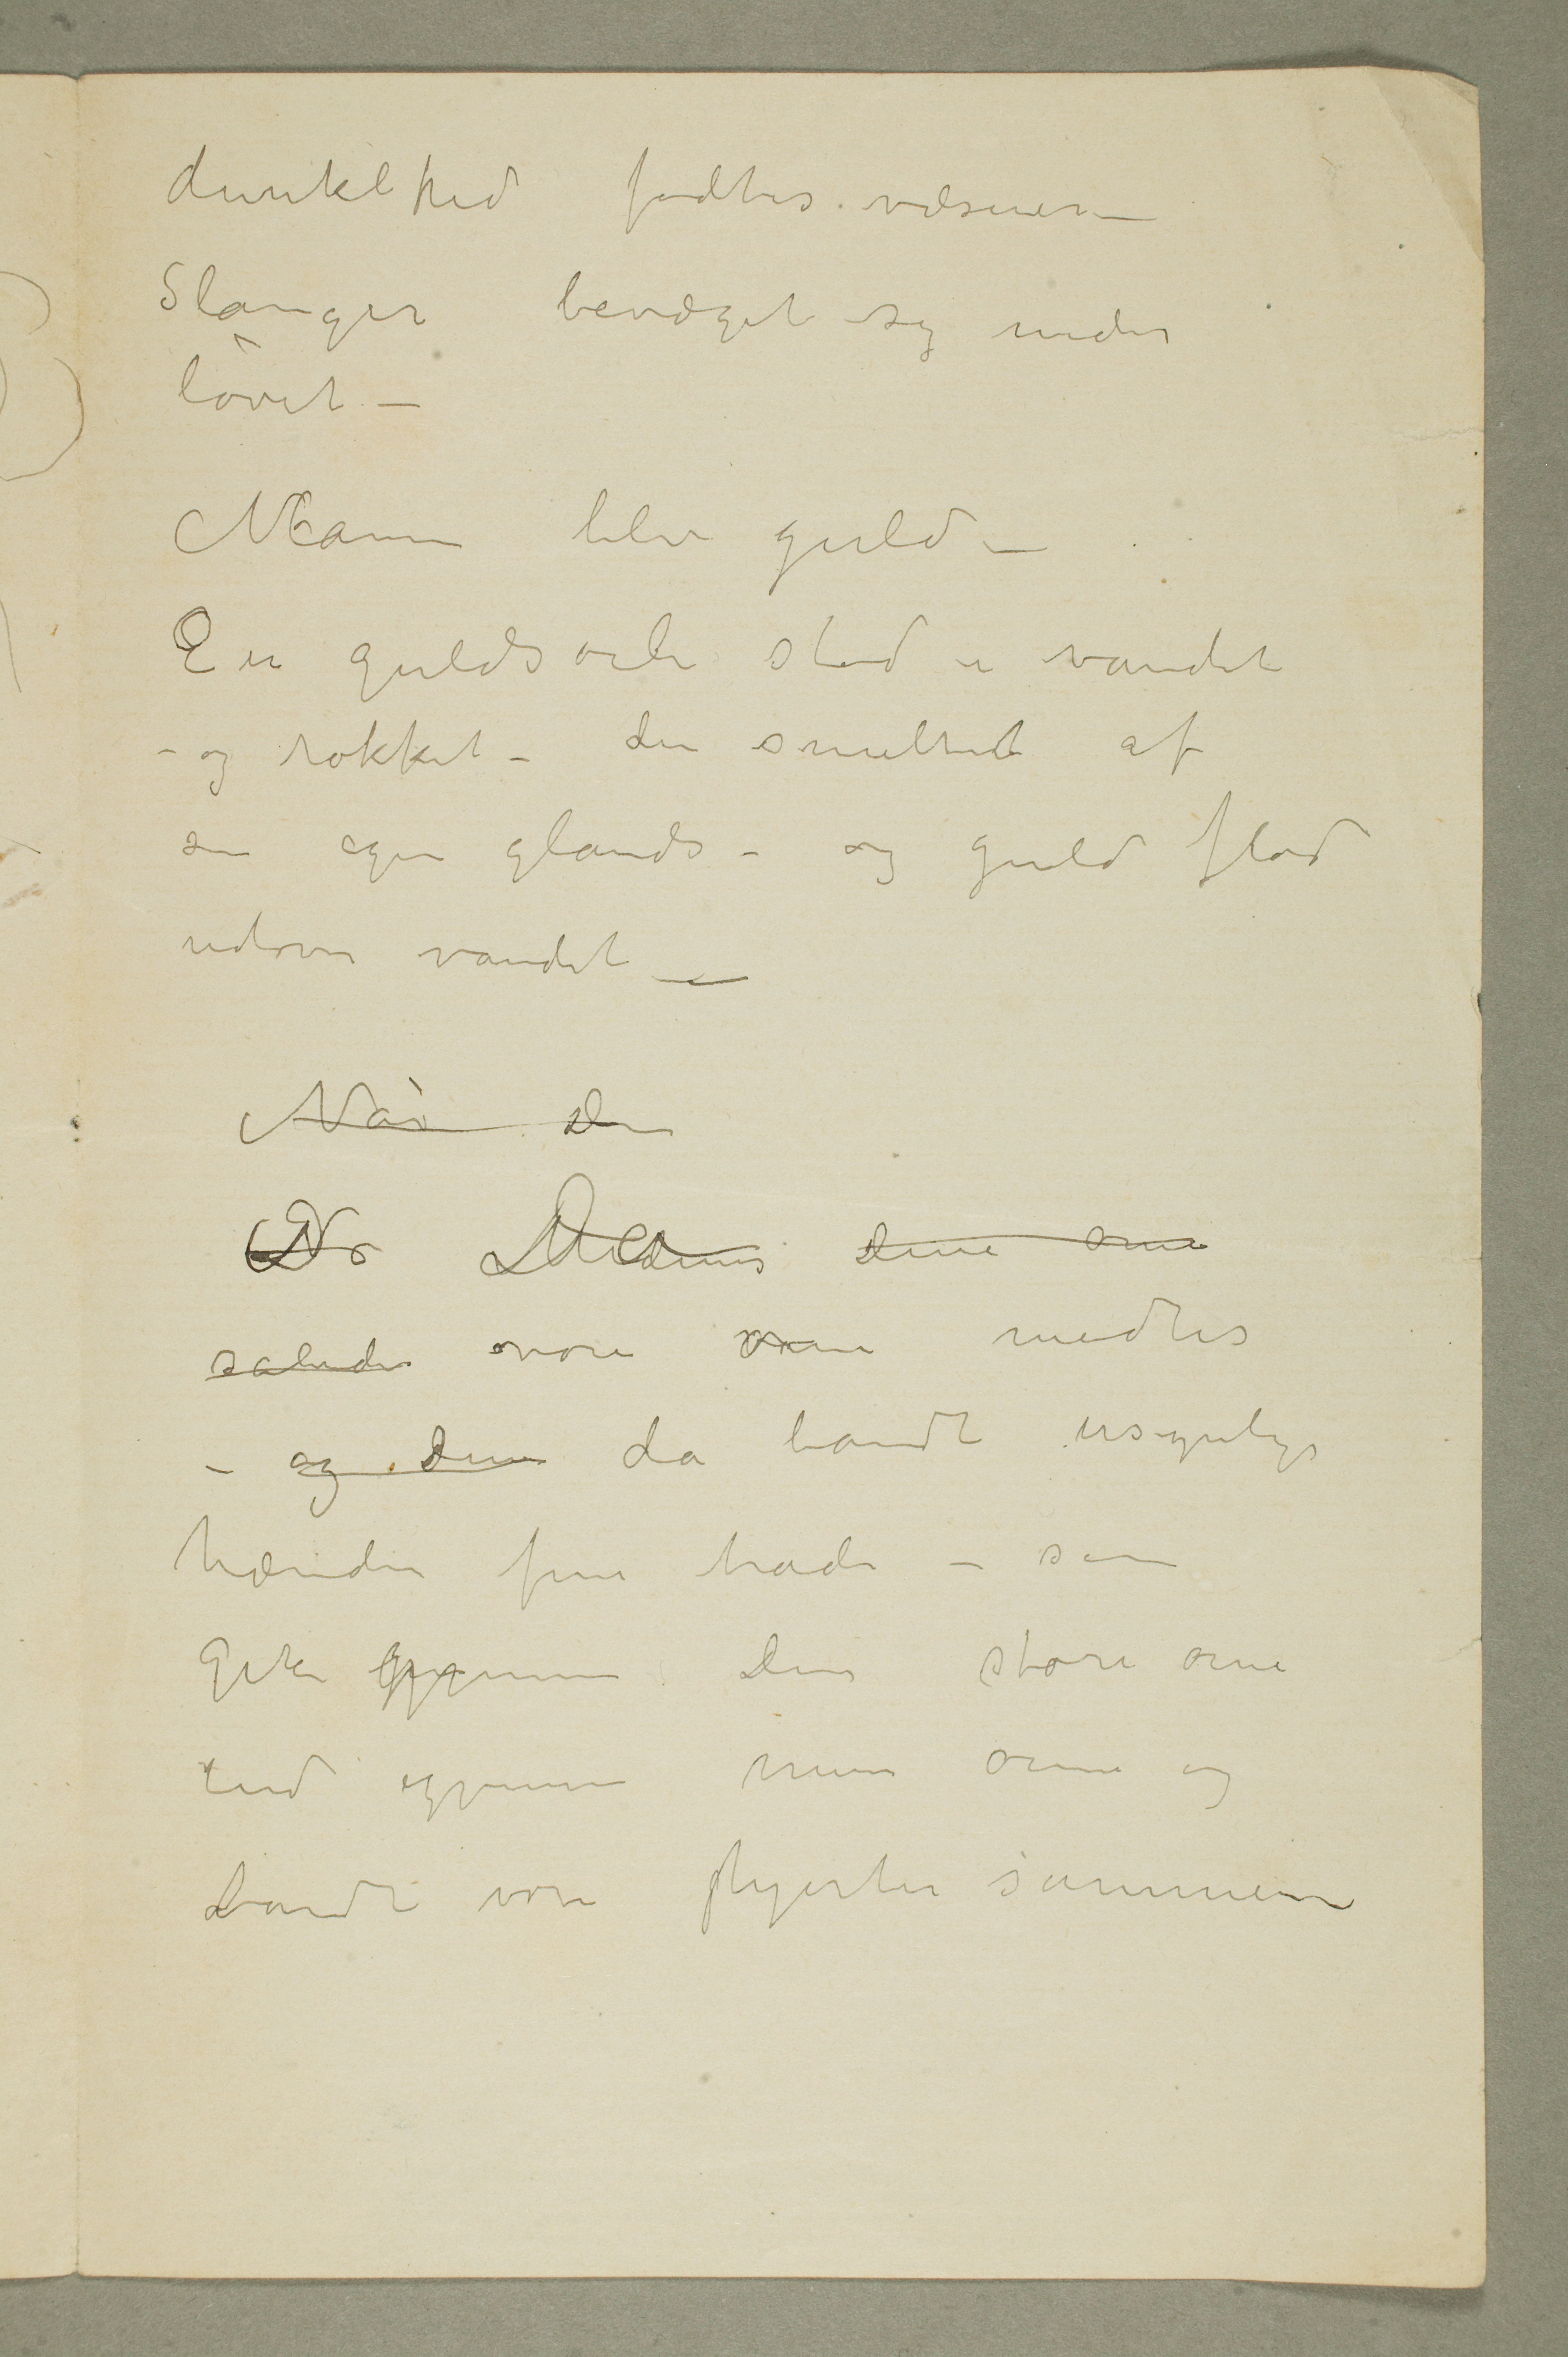 dunkelhed fødtes væsener –
Slanger bevæget sig under
løvet –
Månen blev guld –
En guldsøile stod i vandet
– og rokket – den smeltet af
sin egen glands – og guld flød
udover vandet –
Når den
Når Dine øine
således vore øine mødtes
– og dine da bandt usynlige
hænder fine tråde – som
gik gjennem dine store øine
ind igjennem mine øine og
bandt vore hjerter sammen